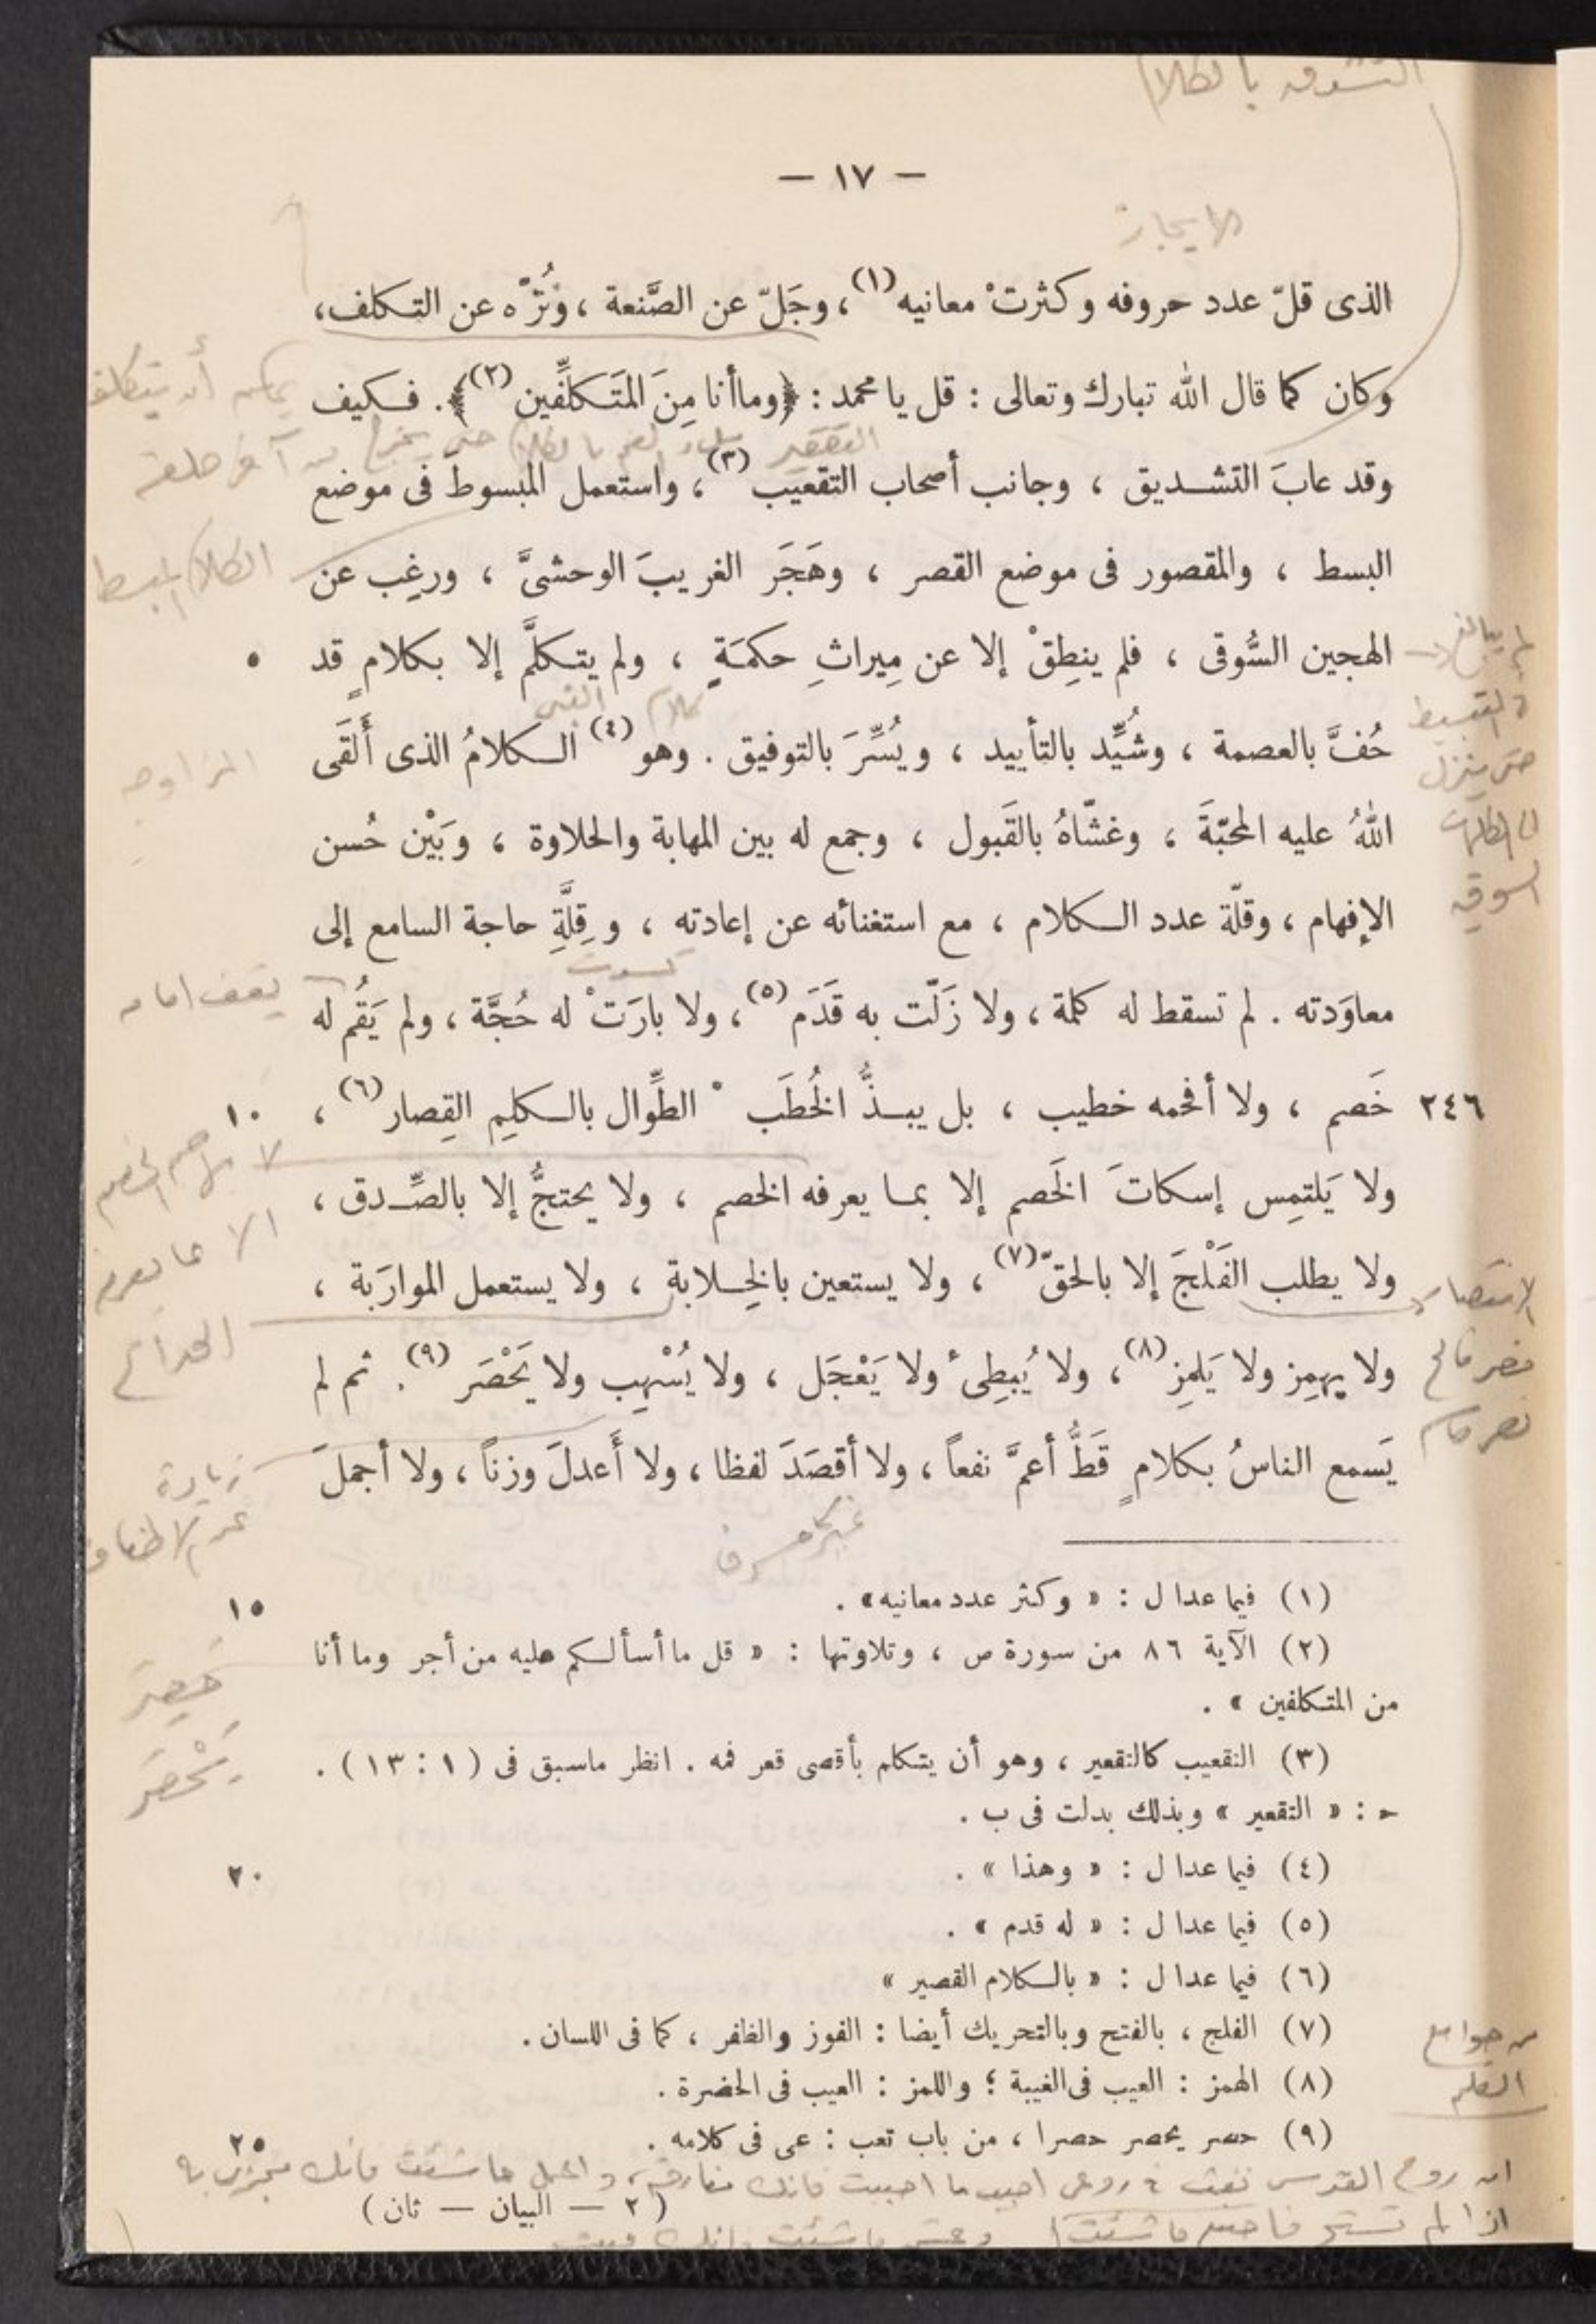 التشدق بالكلام
— ١٧ —
الايجاز
الذى قلّ عدد حروفه وكثرتْ معانيه(١)، وجَلّ عن الصَّنعة ، ونُزّه عن التكلف،
وكان كما قال الله تبارك وتعالى : قل يا محمد : ﴿وما أنا مِنَ المتَكلِّفين(٢)﴾. فكيف
يمكن أن يتكلف
التقعير
وقد عابَ التشديق ، وجانب أصحاب التقعيب(٣)، واستعمل المبسوطَ فى موضع
البسط ، والمقصور فى موضع القصر ، وهَجَر الغريبَ الوحشىَّ ، ورغِب عن
الكلام
الهجين السُّوقى ، فلم ينطِقْ إلا عن مِيراثِ حكمَةٍ ، ولم يتكلَّم إلا بكلامٍ قد ٥
كلام النبى
حُفَّ بالعصمة ، وشُيِّد بالتأييد ، ويُسِّرَ بالتوفيق . وهو(٤) الكلامُ الذى أَلقَى
المزاوجه
حتى ينزل
اللهُ عليه المحبّةَ ، وغشّاهُ بالقَبول ، وجمع له بين المهابة والحلاوة ، وبَيْن حُسن
الإفهام ، وقلّة عدد الكلام ، مع استغنائه عن إعادته ، وقِلَّةِ حاجة السامع إلى
السوقيه
كسدت
معاوَدته . لم تسقط له كلمة ، ولا زَلّت به قَدَم(٥)، ولا بارَتْ له حُجَّة ، ولم يَقُم له
يقف امامه
٢٤٦ خَصم ، ولا أفحمه خطيب ، بل يبذُّ الخُطَبْ الطِّوال بالكلِمِ القِصار(٦) ، ١٠
ولا يَلتمِس إسكاتَ الخَصم إلا بما يعرفه الخصم ، ولا يحتجُّ إلا بالصِّدق ،
الا بما يعرفه
ولا يطلب الفَلْجَ إلا بالحقّ(٧)، ولا يستعين بالخِلابة ، ولا يستعمل الموارَبة ،
الانتصار
الخداع
ولا يهمِز ولا يَلمِز(٨)، ولا يُبطِئُ ولا يَعْجَل ، ولا يُسْهِب ولا يَحْصَر(٩). ثم لم
يَسمع الناسُ بكلامٍ قَطُّ أعمَّ نفعاً ، ولا أقصَدَ لفظا ، ولا أَعدلَ وزناً ، ولا أجملَ
زيادة
(١) فيما عدا ل : « وكثر عدد معانيه» . ١٥
(٢) الآية ٨٦ من سورة ص ، وتلاوتها : « قل ما أسألكم عليه من أجر وما أنا
من المتكلفين » .
حصر
يَحْصَر
(٣) التقعيب كالتقعير ، وهو أن يتكلم بأقصى قعر فمه . انظر ما سبق فى (١ : ١٣) .
ح : « التقعير » وبذلك بدلت فى ب .
(٤) فيما عدا ل : « وهذا » . ٢٠
(٥) فيما عدا ل : « له قدم » .
(٦) فيما عدا ل : « بالكلام القصير »
(٧) الفلج ، بالفتح وبالتحريك أيضا : الفوز والظفر ، كما فى اللسان .
من جوامع
(٨) الهمز : العيب فى الغيبة ؛ واللمز : العيب فى الحضرة .
الكلم
(٩) حصر يحصر حصرا ، من باب تعب : عى فى كلامه . ٢٥
ان روح القدس نفث فى روعى احبب ما احببت فانك مفارقه واعمل ما شئت فانك مجزى به
(٢ — البيان — ثان)
اذا لم تستح فاصنع ما شئت وعش ما شئت فانك ميت